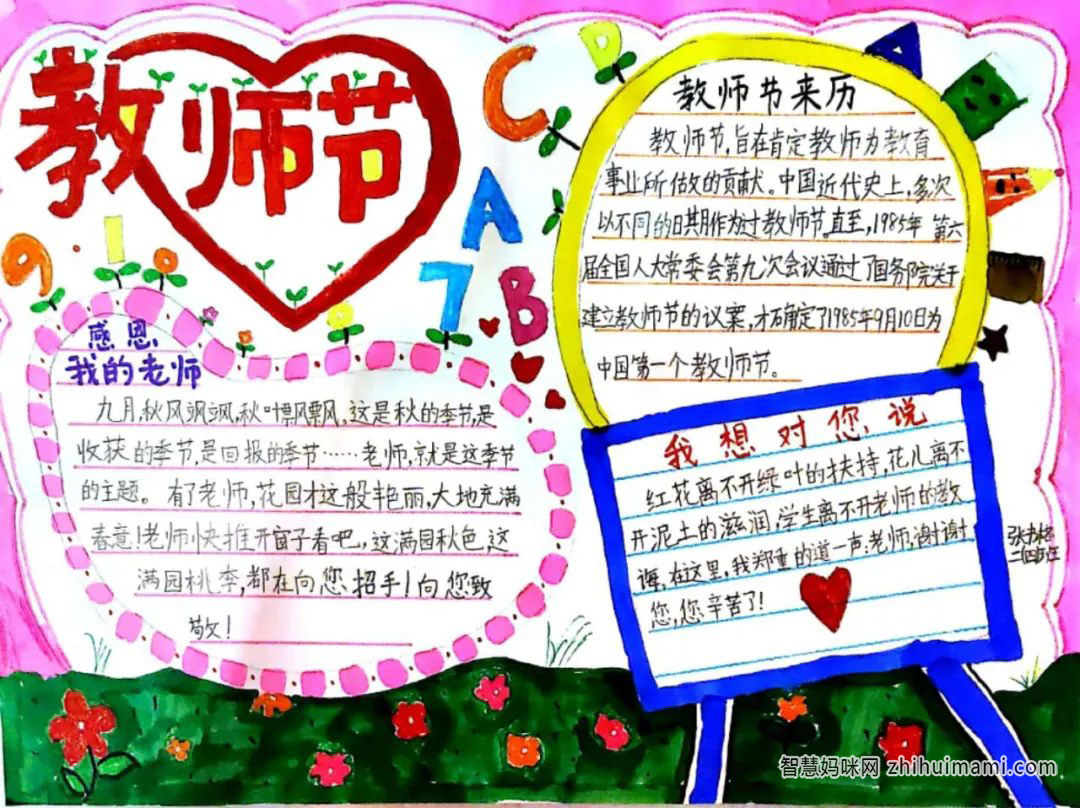 教师节
C
D
A
A
9
1
7
B
教师节来历
教师节,旨在肯定教师为教育
事业所做的贡献。中国近代史上,多次
以不同的日期作为过教师节。直至,1985年 第六
届全国人大常委会第九次会议通过了国务院关于
建立教师节的议案,才确定了1985年9月10日为
中国第一个教师节。
感恩
我的老师
九月,秋风飒飒,秋叶飘飘。这是秋的季节,是
收获的季节,是回报的季节……老师,就是这季节
的主题。有了老师,花园才这般艳丽,大地充满
春意!老师快推开窗子看吧,这满园秋色,这
满园桃李,都在向您招手!向您致
敬!
我想对您说
红花离不开绿叶的扶持,花儿离不
开泥土的滋润,学生离不开老师的教
诲,在这里,我郑重的道一声:老师,谢谢
您,您辛苦了!
智慧妈咪网 zhihuimami.com